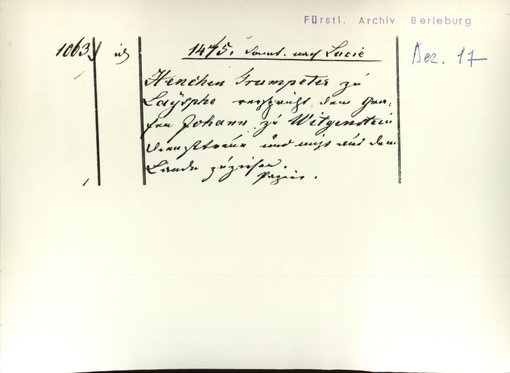 Fürstl. Archiv Berleburg
1063. id 1475. Sonnt. nach Lucie Dez. 17
Henchen Trumpeter zu
Laÿsphe verspricht dem Gra-
fen Johann zu Witgenstein
Diensttreue und nicht aus dem
Lande zu ziehen.
Papier.